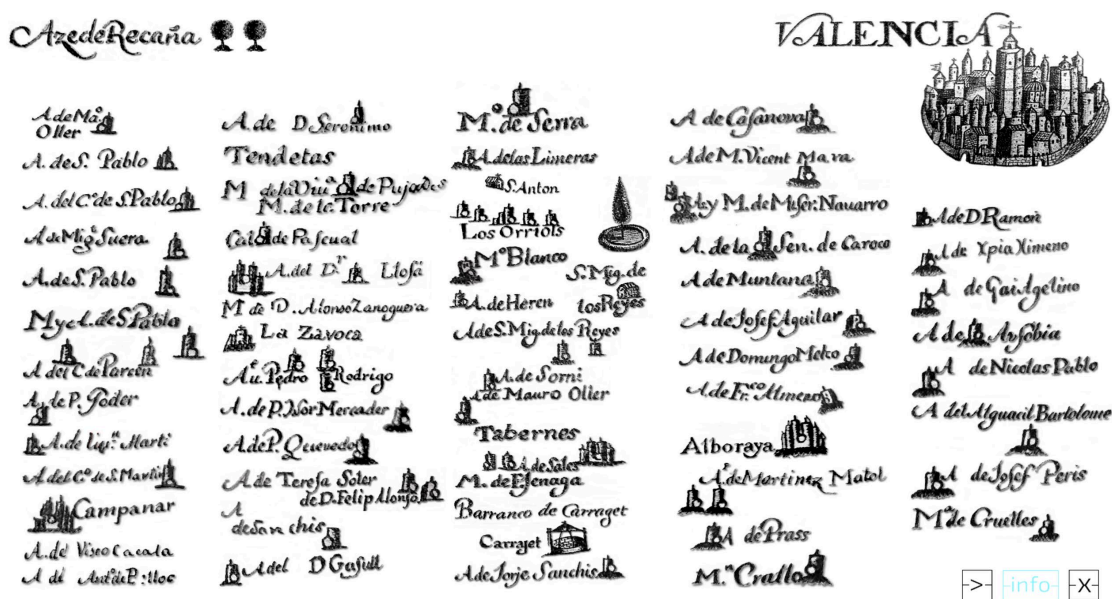 AzedeRecaña
VALENCIA
A. de Mã.
Oller
A. de S. Pablo
A. del Cº de S. Pablo
A de Migl Suera
A. de S. Pablo
M y A. de S Pablo
A del C de Parcen
A. de P. Goder
A. de Martí
A. del Cº de S. Martin
Campanar
A. del
A de
A. de D Seronimo
Tendetas
M de la Viuª de Pujades
M. de la Torre
Cald de Pascual
A. del Dr Llosa
Mº de D. Alonso Zanoguera
La Zavoca
Au. Pedro Rodrigo
A. de P. Isor Mercader
A de P. Quevedo
A. de Teresa Soler
de D. Felip Alonso
A
de Sanchis
A del D Gasull
M. de Serra
A. de las Limeras
S. Anton
Los Orriols
Mº Blanco
S. Mig. de
los Reyes
A. de Heren
A de S. Mig. de los Reyes
A. de Sorni
A de Mauro Oller
Tabernes
A de Sales
M. de Esenaga
Barranco de Carraget
Carrajet
A. de Jorje Sanchis
A de Casanova
A de M. Vicent Mava
A y M. de Miser. Navarro
A. de la Sen. de Caroco
A de Muntana
A de Josef Aguilar
A de Domingo Melto
A. de Frco Almenos
Alboraya
A de Martinez Matol
A de Prass
M.ª Crallo
A de D Ramon
A de Ypia Ximeno
A de Gai Agelino
A de Ansobia
A de Nicolas Pablo
A del Alguacil Bartolome
A de Josef Peris
Mº de Cruelles
-> info -X-